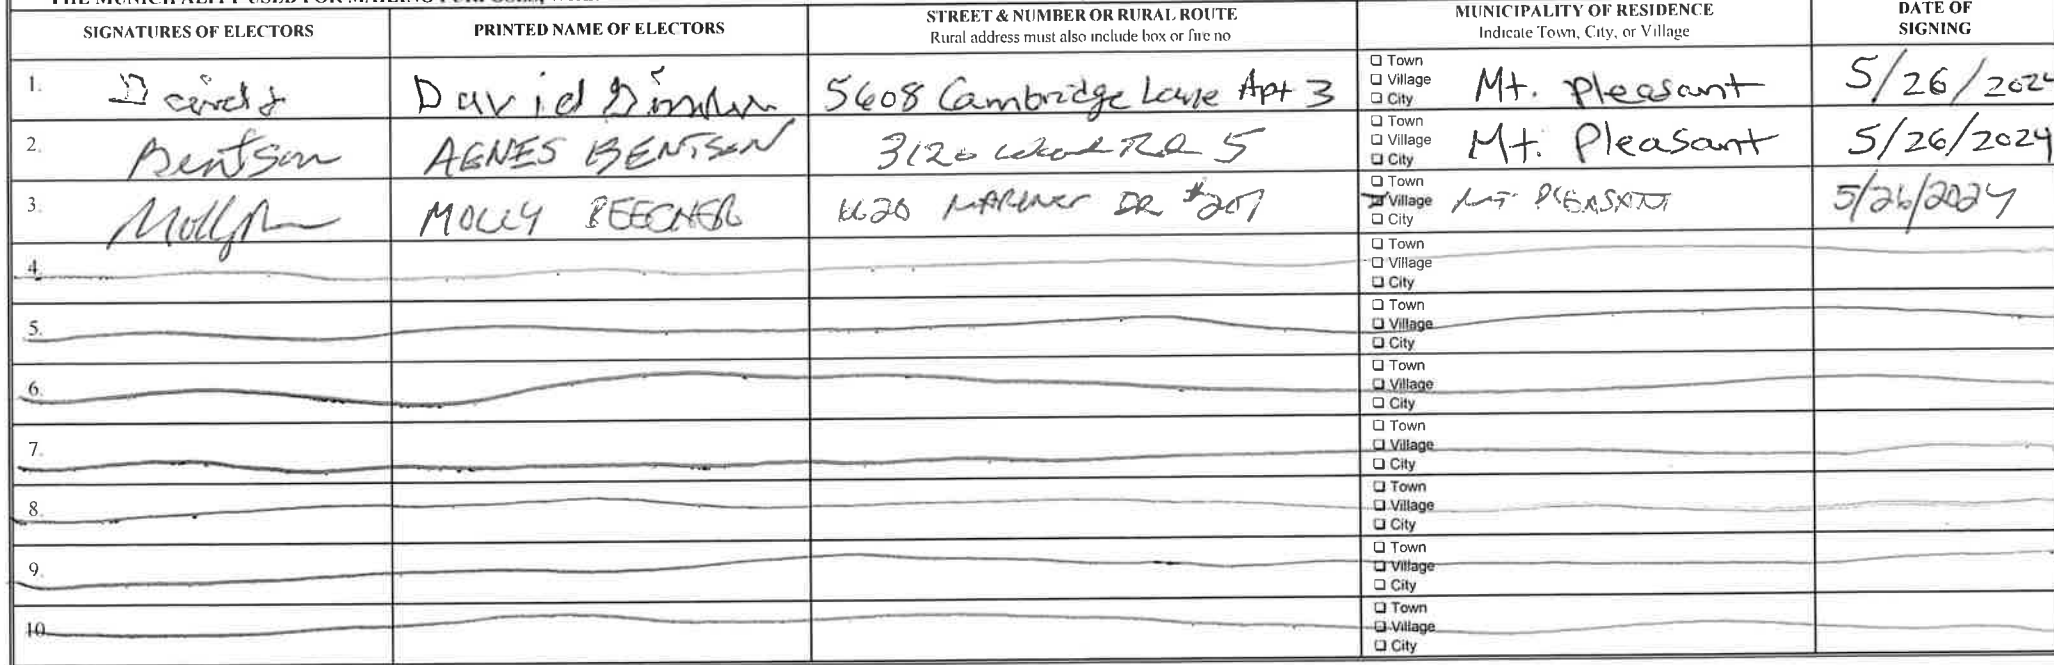 SIGNATURES OF ELECTORS PRINTED NAME OF ELECTORS STREET & NUMBER OR RURAL ROUTE MUNICIPALITY OF RESIDENCE DATE OF
Rural address must also include box or fire no Indicate Town, City, or Village SIGNING
1. David David 5608 Cambridge Lane Apt 3 Town Village City Mt. Pleasant 5/26/2024
2. Bentson AGNES BENTSON 3120 Rd 5 Town Village City Mt. Pleasant 5/26/2024
3. MOLLY BEECHER DR #207 Town Village City MT PLEASANT 5/26/2024
4. Town Village City
5. Town Village City
6. Town Village City
7. Town Village City
8. Town Village City
9. Town Village City
10. Town Village City